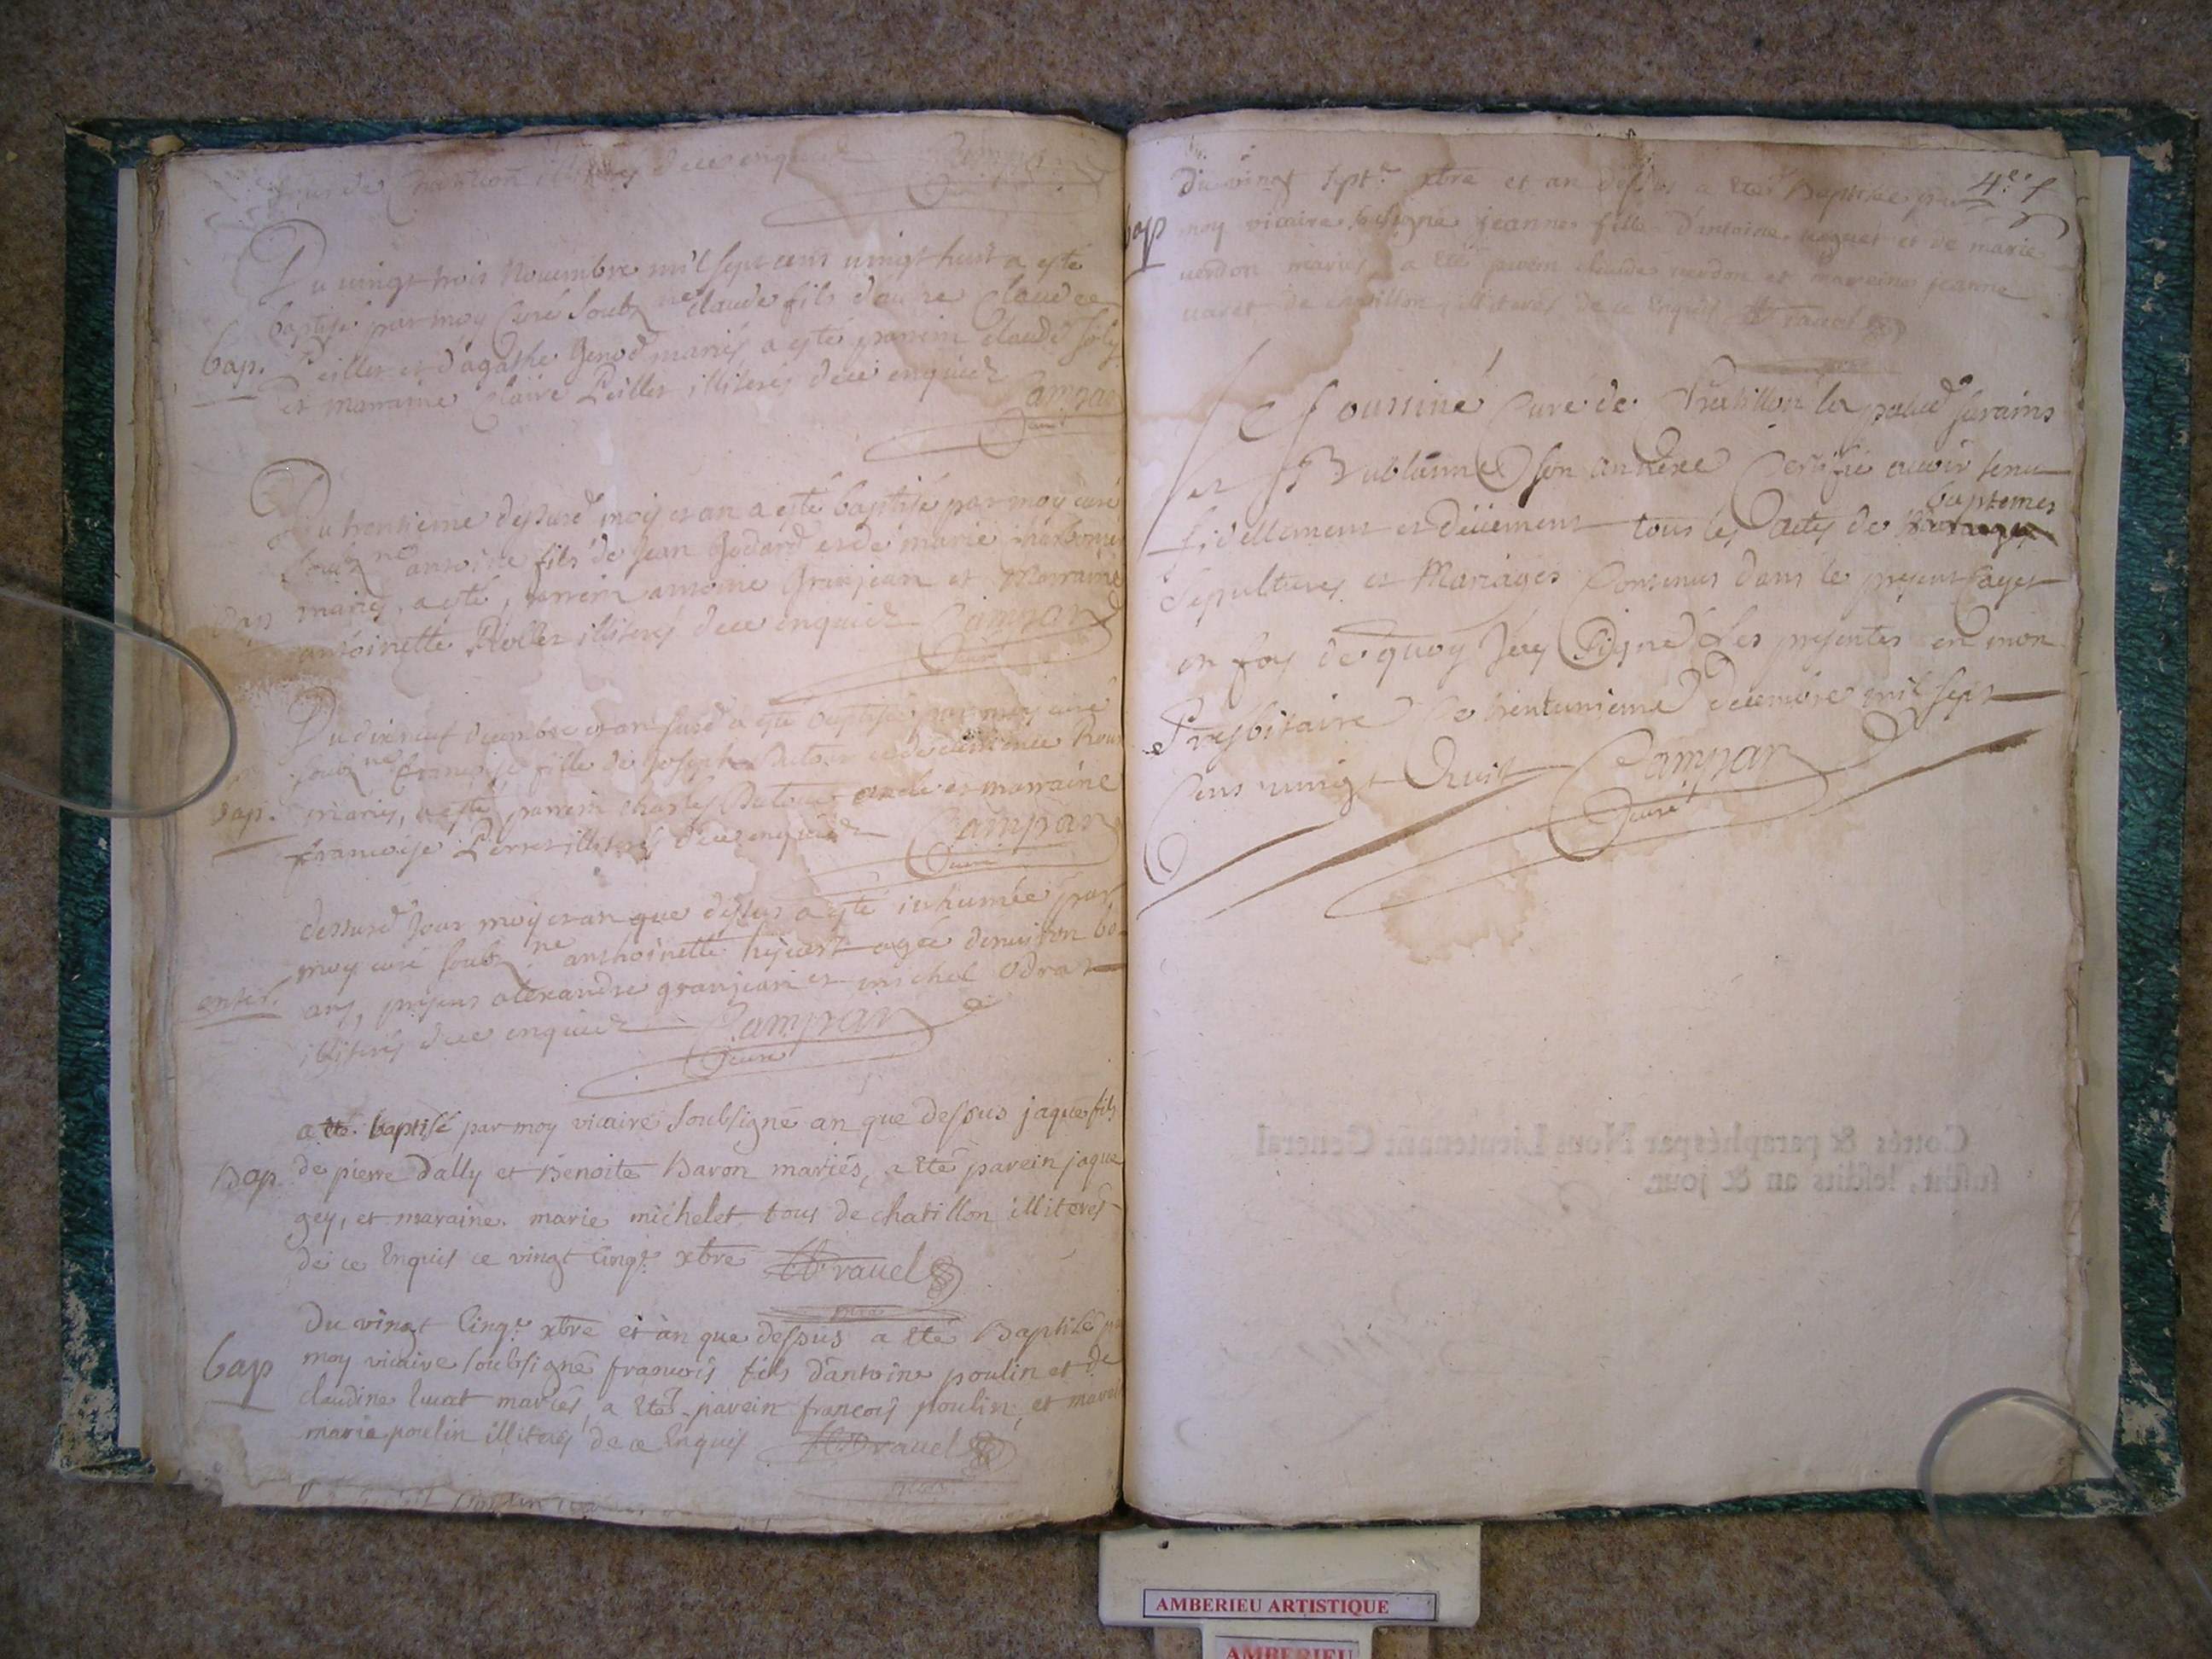 tous de Chatillon illiterés de ce enquis Campan
Curé
Du vingt trois Novembre mil sept cens vingt huit a esté
baptisé par moy Curé soubz né claude fils d'autre Claude
bap. Peillet et d'agathe Genod mariés a esté parrein claude
et marraine Claire Peillet illiterés de ce enquis
Campan
Curé
Du trentieme dessusd moy et an a esté baptisé par moy curé
soubz né antoine fils de Jean Godard et de marie
bap mariés, a esté, parrein antoine Granjean et marraine
antoinette illiterés de ce enquis Campan
Curé
Du dixneuf decembre et an susd a été baptisée par moy curé
soubz né francoise fille de Joseph et de
bap. mariés, a esté parrein charles oncle et marraine
francoise Perret illiterés de ce enquis Campan
Curé
dessusd Jour moy et an que dessus a esté inhumée par
moy curé soubz né anthoinette agée denuiron
enter. ans, presens alexandre granjean et michel Odra
illiterés de ce enquis Campan
Curé
a été baptisé par moy vicaire soubsigné an que dessus jaque fils
Bap de pierre Dally et Benoite Baron mariés, a eté parein jaque
gey, et maraine marie michelet tous de chatillon illiterés
de ce Enquis ce vingt Cinq.e xbre Brauel
Du vingt Cinq.e xbre et àn que dessus a eté Baptisé
bap moy vicaire soubsigné francois fils d'antoine poulin et de
claudine mariés, a eté parein francois poulin, et
marie poulin illiterés de ce Enquis Brauel
Du vingt sept.e xbre et an dessus a eté Baptisée par 4.e f
bap moy vicaire soussigné jeanne fille d'antoine et de marie
verdon mariés, a eté parein claude verdon et mareine jeanne
de chatillon, illiterés de ce Enquis Brauel
Je soussiné Curé de Chatillon la palud
et Bublanne son annexe Certifie auoir tenu
baptemes
fidellement et deüement tous les actes de
Sepultures et Mariages Contenus dans le present Cayet
en foy de quoy Jay Signé Les presentes en mon
Presbitaire Ce trentunieme decembre mil sept
Cens vingt Huit Campan
Curé
Cottés & paraphés par Nous Lieutenant General
susdit, lesdits an & jour.
AMBERIEU ARTISTIQUE
AMBERIEU